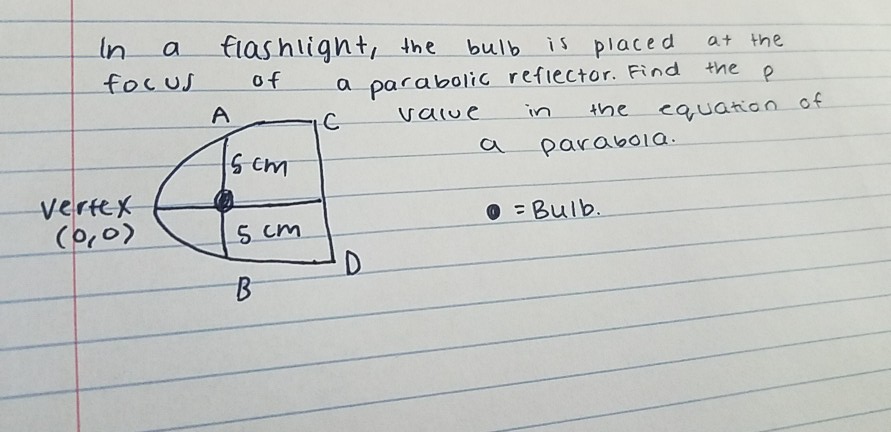 In a flashlight, the bulb is placed at the
focus of a parabolic reflector. Find the p
value in the equation of
a parabola.
A
C
5 cm
vertex
(0,0)
5 cm
= Bulb.
D
B